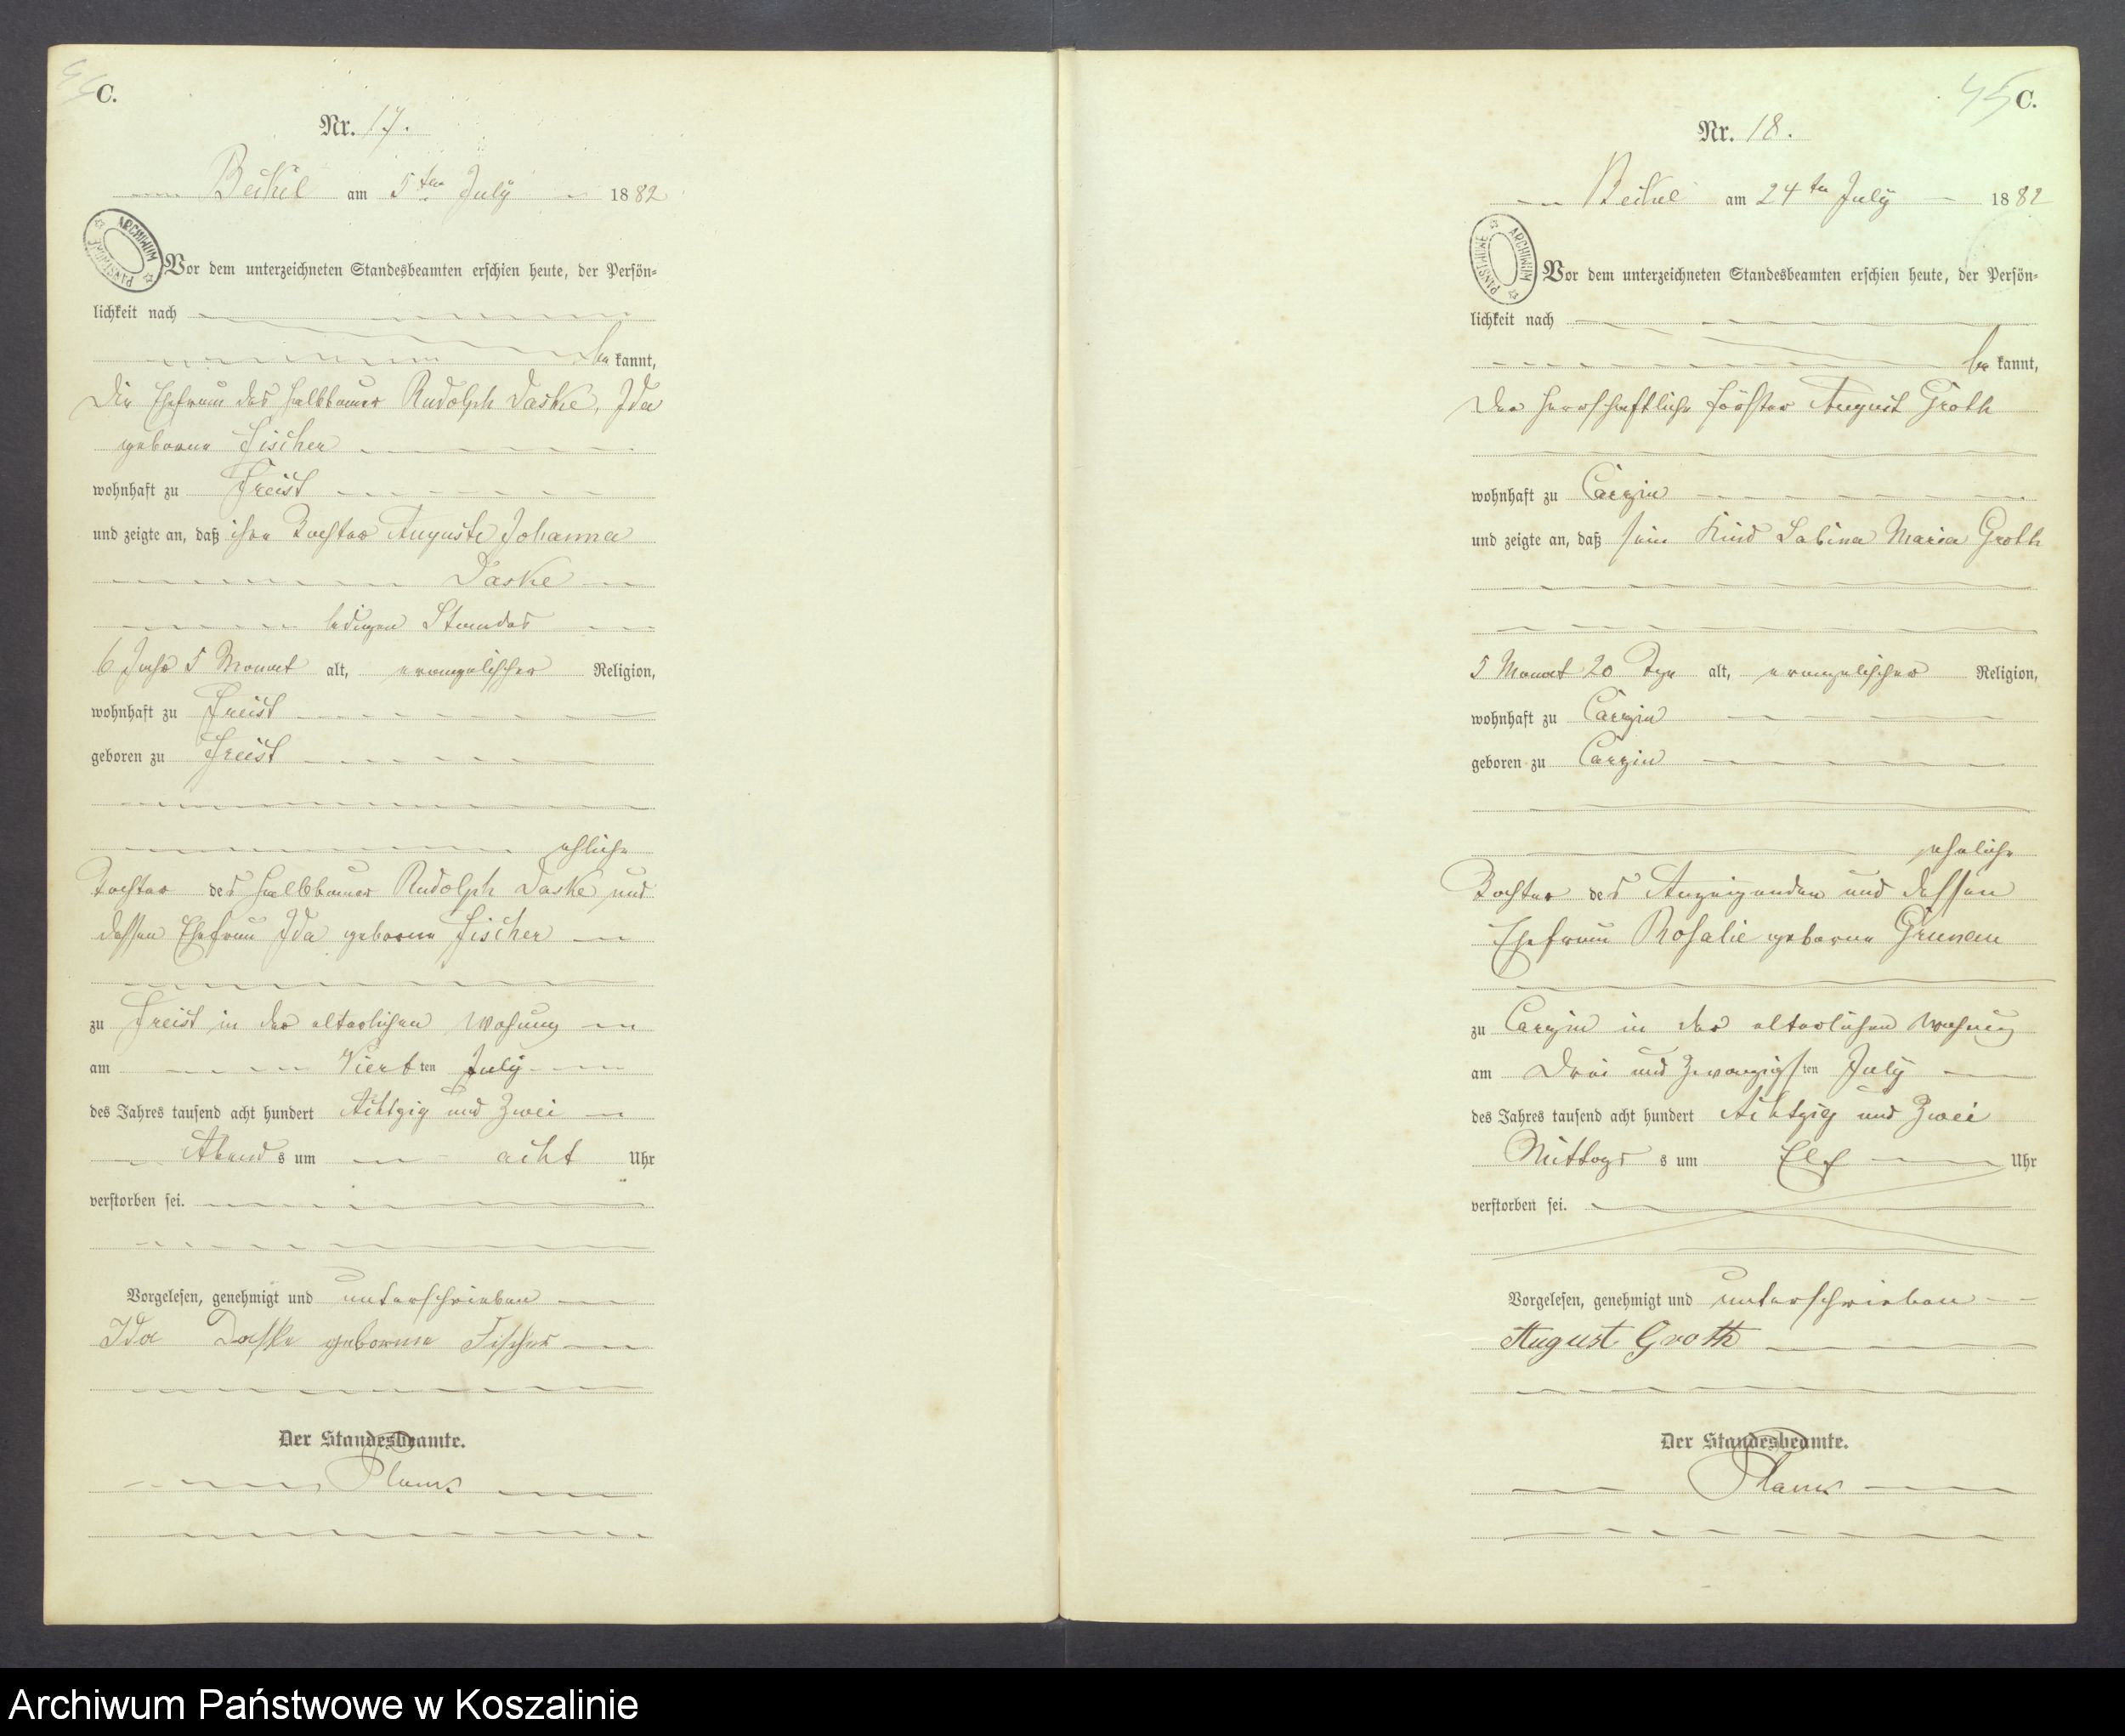 C.
Nr. 17.
Beckel am 5ten July 1882
ARCHIWUM PAŃSTWOWE
Vor dem unterzeichneten Standesbeamten erschien heute, der Persön-
lichkeit nach
bekannt,
Die Ehefrau des Halbbauer Rudolph Daske, Ida
geborne Fischer
wohnhaft zu Freist
und zeigte an, daß ihre Tochter Auguste Johanna
Daske
ledigen Standes
6 Jahr 5 Monat alt, evangelischer Religion,
wohnhaft zu Freist
geboren zu Freist
ehliche
Tochter des Halbbauer Rudolph Daske und
dessen Ehefrau Ida geborne Fischer
zu Freist in der elterlichen Wohnung
am Vierten July
des Jahres tausend acht hundert Achtzig und Zwei
Abends um acht Uhr
verstorben sei.
Vorgelesen, genehmigt und unterschrieben
Ida Daske geborene Fischer
Der Standesbeamte.
45 C.
Nr. 18.
Beckel am 24ten July 1882
ARCHIWUM PAŃSTWOWE
Vor dem unterzeichneten Standesbeamten erschien heute, der Persön-
lichkeit nach
bekannt,
Der herrschaftliche Förster August Groth
wohnhaft zu Carzin
und zeigte an, daß sein Kind Sabina Maria Groth
5 Monat 20 Tage alt, evangelischer Religion,
wohnhaft zu Carzin
geboren zu Carzin
eheliche
Tochter des Anzeigenden und dessen
Ehefrau Rosalie geborne Grunau
zu Carzin in der elterlichen Wohnung
am Drei und Zwanzigsten July
des Jahres tausend acht hundert Achtzig und Zwei
Mittags s um Elf Uhr
verstorben sei.
Vorgelesen, genehmigt und unterschrieben
August Groth
Der Standesbeamte.
Archiwum Państwowe w Koszalinie